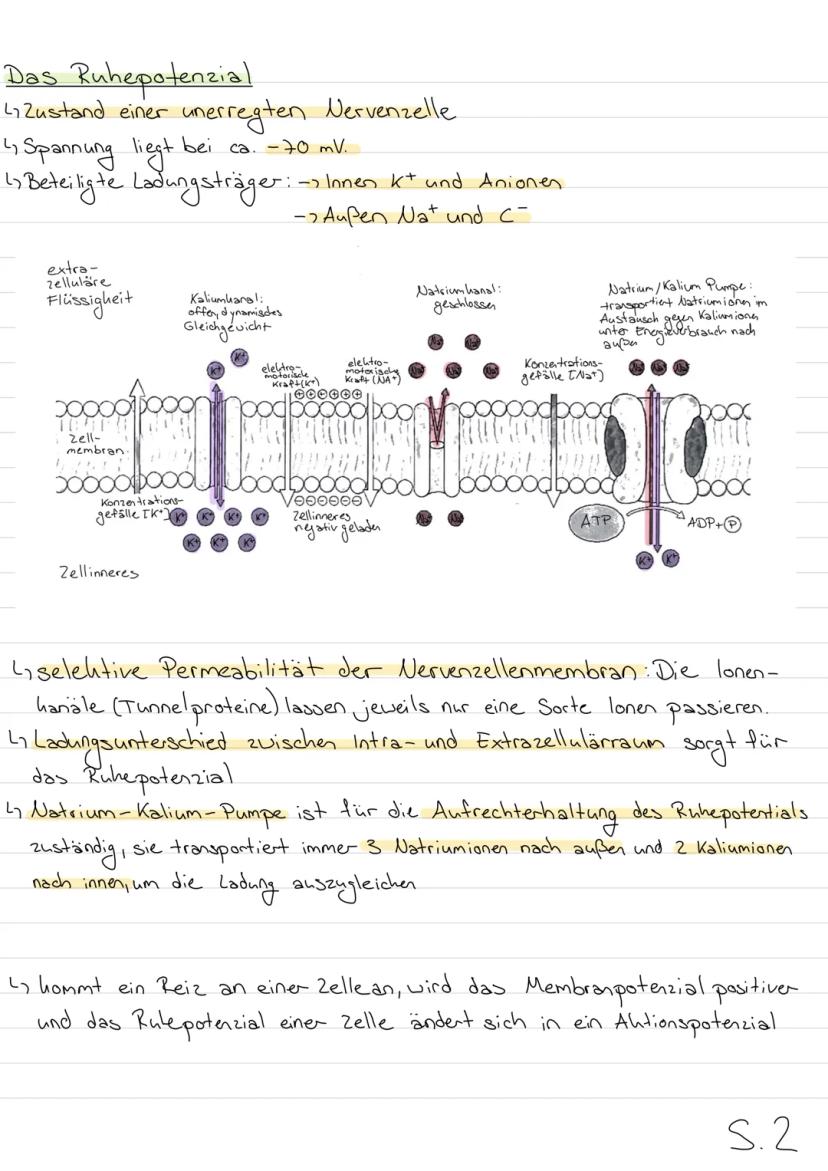 Das Ruhepotenzial
↳ Zustand einer unerregten Nervenzelle
↳ Spannung liegt bei ca. -70 mV.
↳ Beteiligte Ladungsträger: -> Innen K⁺ und Anionen
-> Außen Na⁺ und C⁻
extra-
zelluläre
Flüssigheit
Kaliumkanal:
offen, dynamisches
Gleichgewicht
Natriumkanal:
geschlossen
Natrium/Kalium Pumpe:
transportiert Natriumionen im
Austausch gegen Kaliumionen
unter Energieverbrauch nach
außen
K⁺ K⁺
elektro-
motorische
Kraft (K⁺)
elektro-
motorische
Kraft (NA⁺)
Na⁺ Na⁺
Na⁺ Na⁺ Na⁺
Konzentrations-
gefälle [Na⁺]
Na⁺ Na⁺ Na⁺
⊕⊕⊕⊕⊕⊕
Zell-
membran
Konzentrations-
gefälle [K⁺]
K⁺ K⁺ K⁺ K⁺
K⁺ K⁺ K⁺
⊖⊖⊖⊖⊖⊖
Zellinneres
negativ geladen
Na⁺ Na⁺
ATP
ADP+Ⓟ
K⁺ K⁺
Zellinneres
↳ selektive Permeabilität der Nervenzellenmembran: Die Ionen-
kanäle (Tunnelproteine) lassen jeweils nur eine Sorte Ionen passieren.
↳ Ladungsunterschied zwischen Intra- und Extrazellulärraum sorgt für
das Ruhepotenzial
↳ Natrium-Kalium-Pumpe ist für die Aufrechterhaltung des Ruhepotentials
zuständig, sie transportiert immer 3 Natriumionen nach außen und 2 Kaliumionen
nach innen, um die Ladung auszugleichen
↳ kommt ein Reiz an einer Zelle an, wird das Membranpotenzial positiver
und das Ruhepotenzial einer Zelle ändert sich in ein Aktionspotenzial
S. 2